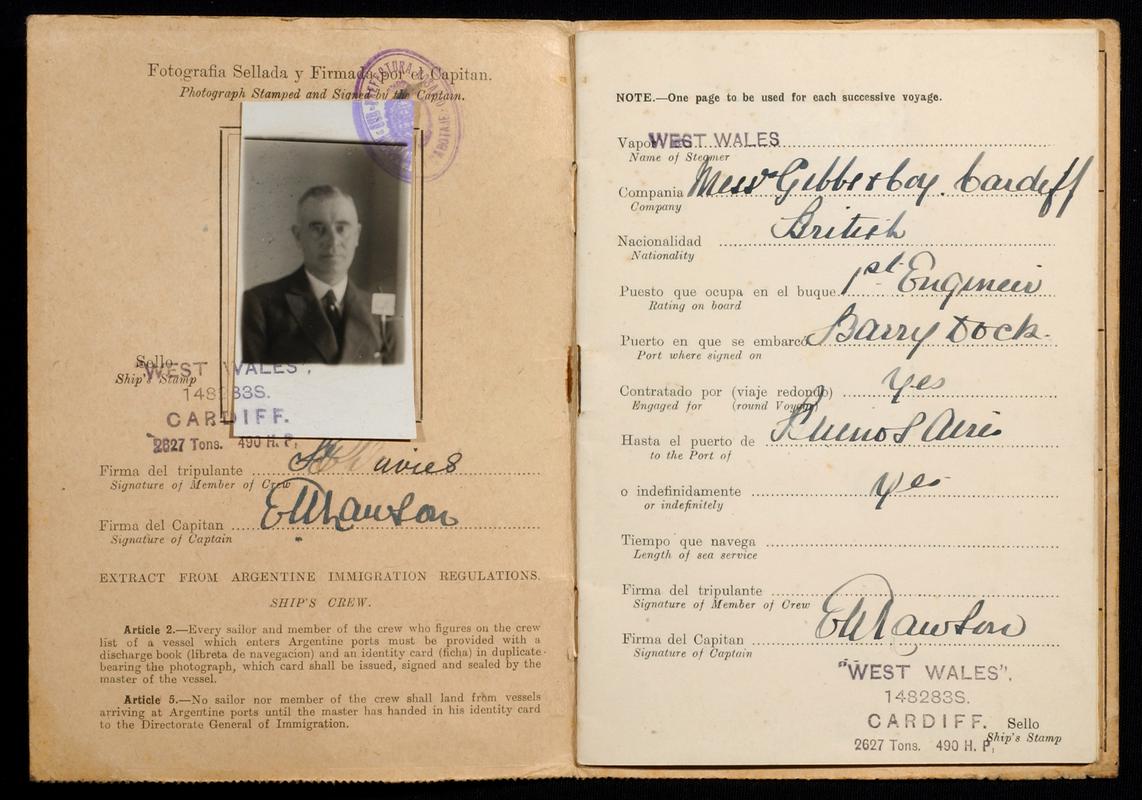 Fotografia Sellada y Firmada por el Capitan.
Photograph Stamped and Signed by the Captain.
Sello
Ship's Stamp
"WEST WALES".
148283S.
CARDIFF.
2627 Tons. 490 H. P.
Firma del tripulante
Davies
Signature of Member of Crew
Firma del Capitan
Lawson
Signature of Captain
EXTRACT FROM ARGENTINE IMMIGRATION REGULATIONS.
SHIP'S CREW.
Article 2.—Every sailor and member of the crew who figures on the crew
list of a vessel which enters Argentine ports must be provided with a
discharge book (libreta de navegacion) and an identity card (ficha) in duplicate
bearing the photograph, which card shall be issued, signed and sealed by the
master of the vessel.
Article 5.—No sailor nor member of the crew shall land from vessels
arriving at Argentine ports until the master has handed in his identity card
to the Directorate General of Immigration.
NOTE.—One page to be used for each successive voyage.
Vapor WEST WALES
Name of Steamer
Compania Messrs Gibbs & Coy. Cardiff
Company
Nacionalidad British
Nationality
Puesto que ocupa en el buque 1st Engineer
Rating on board
Puerto en que se embarcó Barry Dock.
Port where signed on
Contratado por (viaje redondo) Yes
Engaged for (round Voyage)
Hasta el puerto de Buenos Aires
to the Port of
o indefinidamente yes
or indefinitely
Tiempo que navega
Length of sea service
Firma del tripulante
Signature of Member of Crew
Firma del Capitan Lawson
Signature of Captain
"WEST WALES".
148283S.
CARDIFF. Sello
2627 Tons. 490 H. P. Ship's Stamp